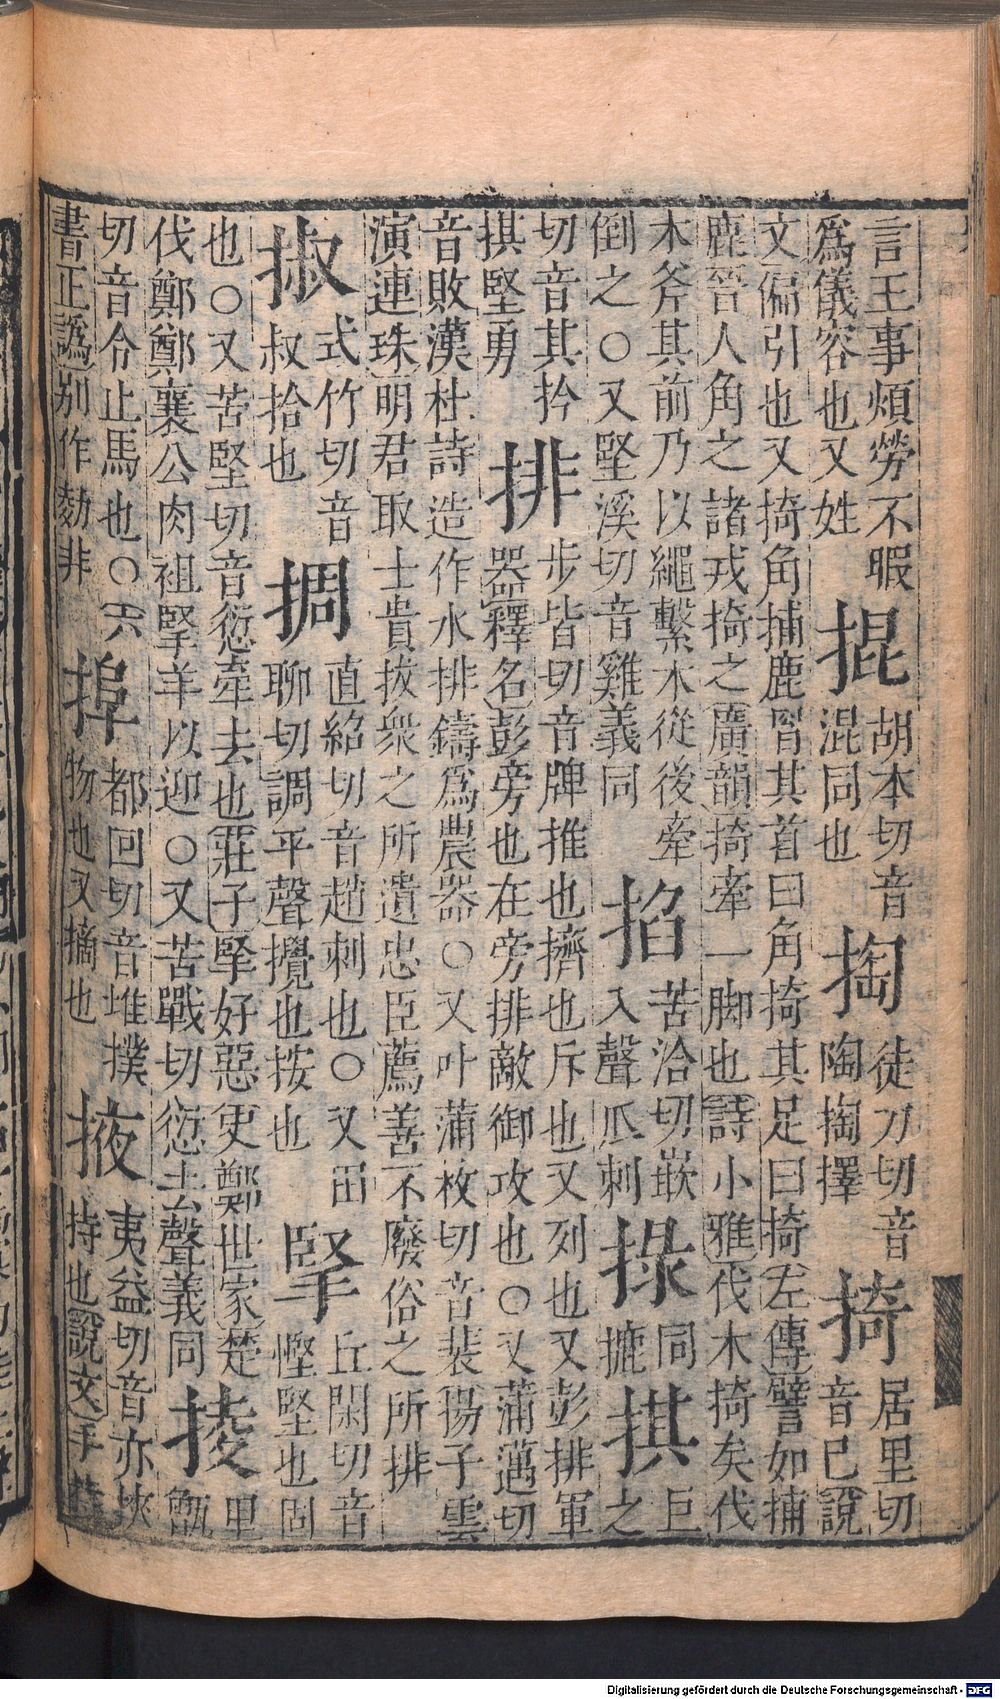 言王事煩勞不暇
爲儀容也又姓
掍
胡本切音
混同也
掏
徒刀切音
陶掏擇
掎
居里切
音已說
文偏引也又掎角捕鹿其首曰角掎其足曰掎左傳譬如捕
鹿晉人角之諸戎掎之廣韻掎牽一脚也詩小雅伐木掎矣伐
木斧其前乃以繩繫木從後牽
倒之○又堅溪切音雞義同
掐
苦洽切嵌
入聲爪刺
同
摝
掑
巨
之
切音其拎
掑堅勇
排
步皆切音牌推也擠也斥也又列也又彭排軍
器釋名彭旁也在旁排敵御攻也○又蒲邁切
音敗漢杜詩造作水排鑄爲農器○又叶蒲枚切音裴揚子雲
演連珠明君取士貴拔衆之所遺忠臣薦善不廢俗之所排
掓
式竹切音
叔拾也
㨄
直紹切音趙刺也○又田
聊切調平聲攪也按也
掔
丘閑切音
慳堅也固
也○又苦堅切音愆牽去也莊子掔好惡史鄭世家楚
伐鄭鄭襄公肉袒掔羊以迎○又苦戰切愆去聲義同
掕
里
甑
切音令止馬也○六
書正譌別作非
都回切音堆撲
物也又擿也
掖
夷益切音亦挾
持也說文手持
Digitalisierung gefördert durch die Deutsche Forschungsgemeinschaft - DFG